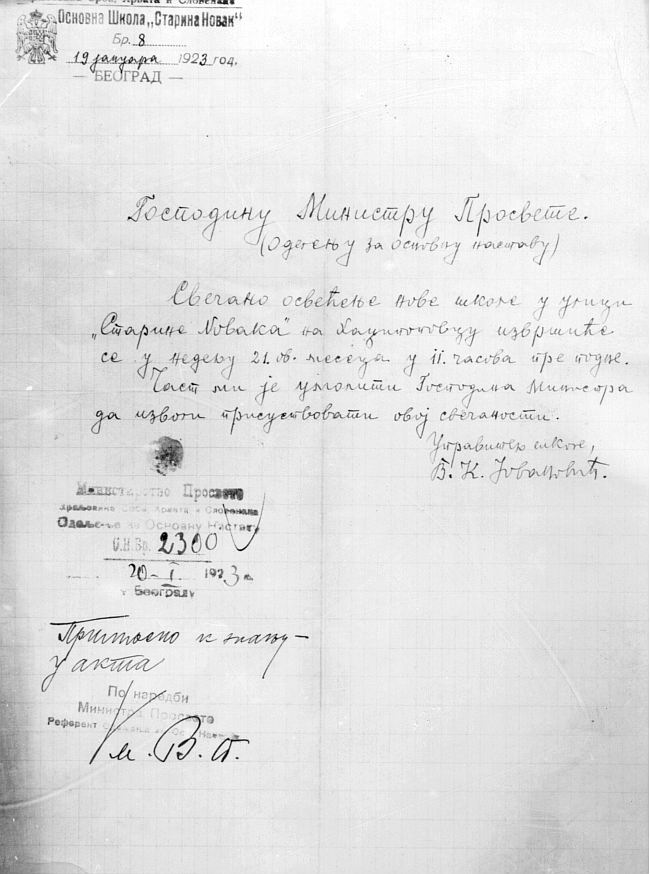 Срба, Хрвата и Словенаца
Основна Школа „Старина Новак“
Бр. 8
19 јануара 1923 год.
— БЕОГРАД —
Господину Министру Просвете.
(Одељењу за основну наставу)
Свечано освећење нове школе у улици
„Старине Новака“ на Хаџипоповцу извршиће
се у недељу 21. ов. месеца у 11. часова пре подне.
Част ми је умолити Господина Министра
да изволи присуствовати овој свечаности.
Управитељ школе,
В. К. Јовановић.
Министарство Просвете
Краљевине Срба Хрвата и Словенаца
Одељење за Основну Наставу
О.Н.Бр. 2300
20-I 1923 г.
у Београду
Примљено к знању —
у акта
По наредби
Министра Просвете
Референт